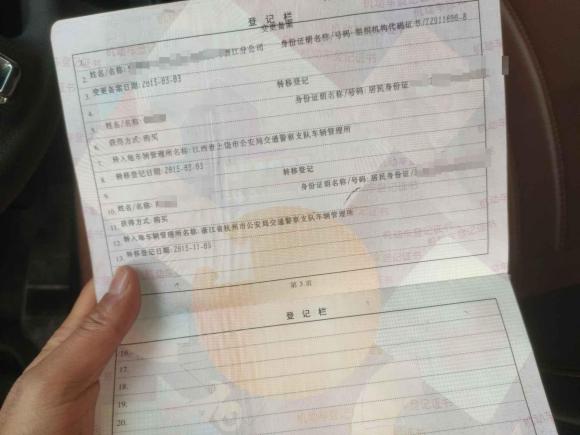 登记栏
变更备案
1.
2. 姓名/名称: 浙江分公司 身份证明名称/号码: 组织机构代码证书/72011696-8
3. 变更备案日期: 2015-03-03
4. 转移登记
5. 姓名/名称: 身份证明名称/号码: 居民身份证
6. 获得方式: 购买
7. 转入地车辆管理所名称: 江西省上饶市公安局交通警察支队车辆管理所
8. 转移登记日期: 2015-03-03
9. 转移登记
10. 姓名/名称: 身份证明名称/号码: 居民身份证/3
11. 获得方式: 购买
12. 转入地车辆管理所名称: 浙江省杭州市公安局交通警察支队车辆管理所
13. 转移登记日期: 2015-11-03
第3页
登记栏
16.
17.
18.
19.
20.